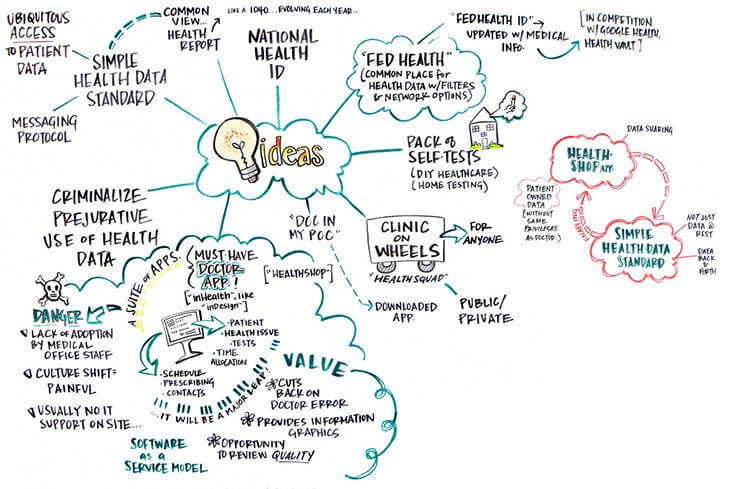 UBIQUITOUS
ACCESS
TO PATIENT
DATA
SIMPLE
HEALTH DATA
STANDARD
MESSAGING
PROTOCOL
COMMON
VIEW...
HEALTH
REPORT
LIKE A 1040...EVOLVING EACH YEAR...
NATIONAL
HEALTH
ID
"FED HEALTH"
(COMMON PLACE for
HEALTH DATA W/FILTERS
& NETWORK OPTIONS)
"FEDHEALTH ID"
UPDATED W/MEDICAL
INFO.
[IN COMPETITION
W/GOOGLE HEALTH,
HEALTH VAULT]
ideas
PACK of
SELF-TESTS
(DIY HEALTHCARE)
(HOME TESTING)
DATA SHARING
HEALTH-
SHOP APP.
PATIENT
OWNED
DATA
(WITHOUT
SAME
PRIVILEGES
AS DOCTOR.)
SIMPLE
HEALTH DATA
STANDARD
NOT JUST
DATA @
REST
DATA
BACK &
FORTH
CRIMINALIZE
PREJURATIVE
USE OF HEALTH
DATA
"DOC IN
MY POC"
DOWNLOADED
APP.
CLINIC
ON
WHEELS
"HEALTH SQUAD"
FOR
ANYONE
PUBLIC/
PRIVATE
A SUITE OF APPS.
MUST HAVE
DOCTOR
APP.!
["inHealth", like
"inDesign"]
["HEALTHSHOP"]
DANGER
LACK OF ADOPTION
BY MEDICAL
OFFICE STAFF
CULTURE SHIFT=
PAINFUL
USUALLY NO IT
SUPPORT ON SITE...
• PATIENT
• HEALTH ISSUE
• TESTS
• TIME
ALLOCATION
• SCHEDULE
• PRESCRIBING
• CONTACTS
...IT WILL BE A MAJOR LEAP!
SOFTWARE
as a
SERVICE MODEL
VALUE
CUTS
BACK ON
DOCTOR ERROR
PROVIDES INFORMATION
GRAPHICS
OPPORTUNITY
TO REVIEW QUALITY